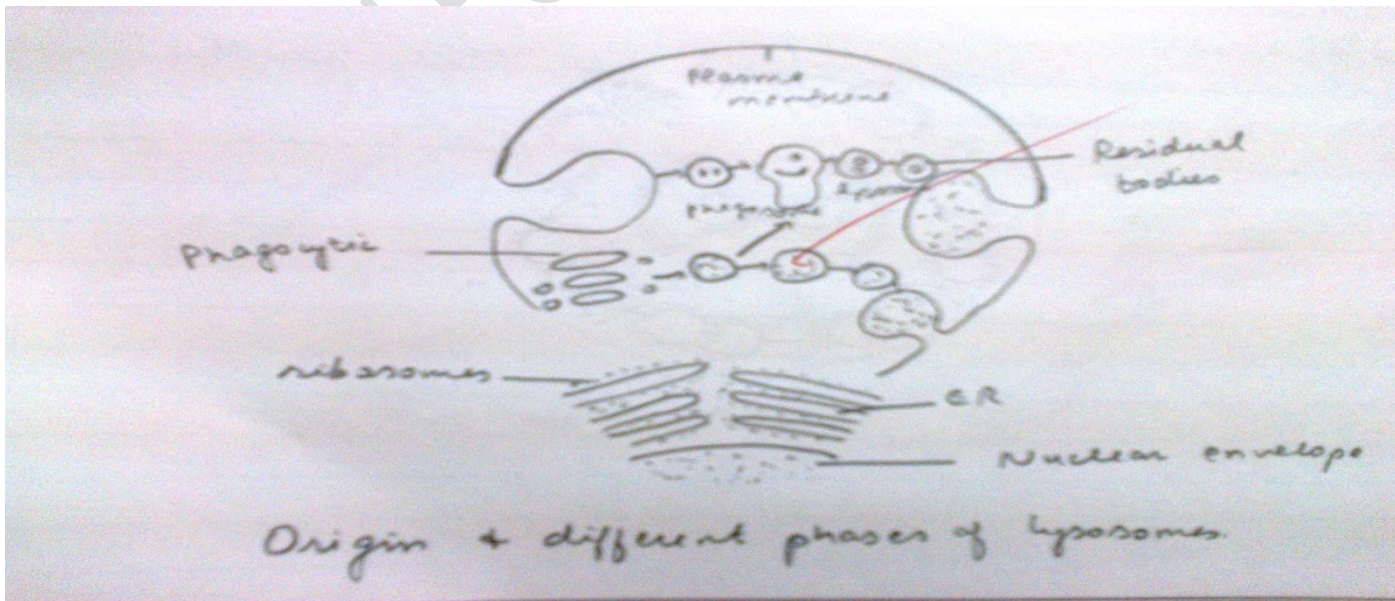 Plasma
membrane
Residual
bodies
phagosome
Phagocytic
ribosomes
ER
Nuclear envelope
Origin & different phases of lysosomes.